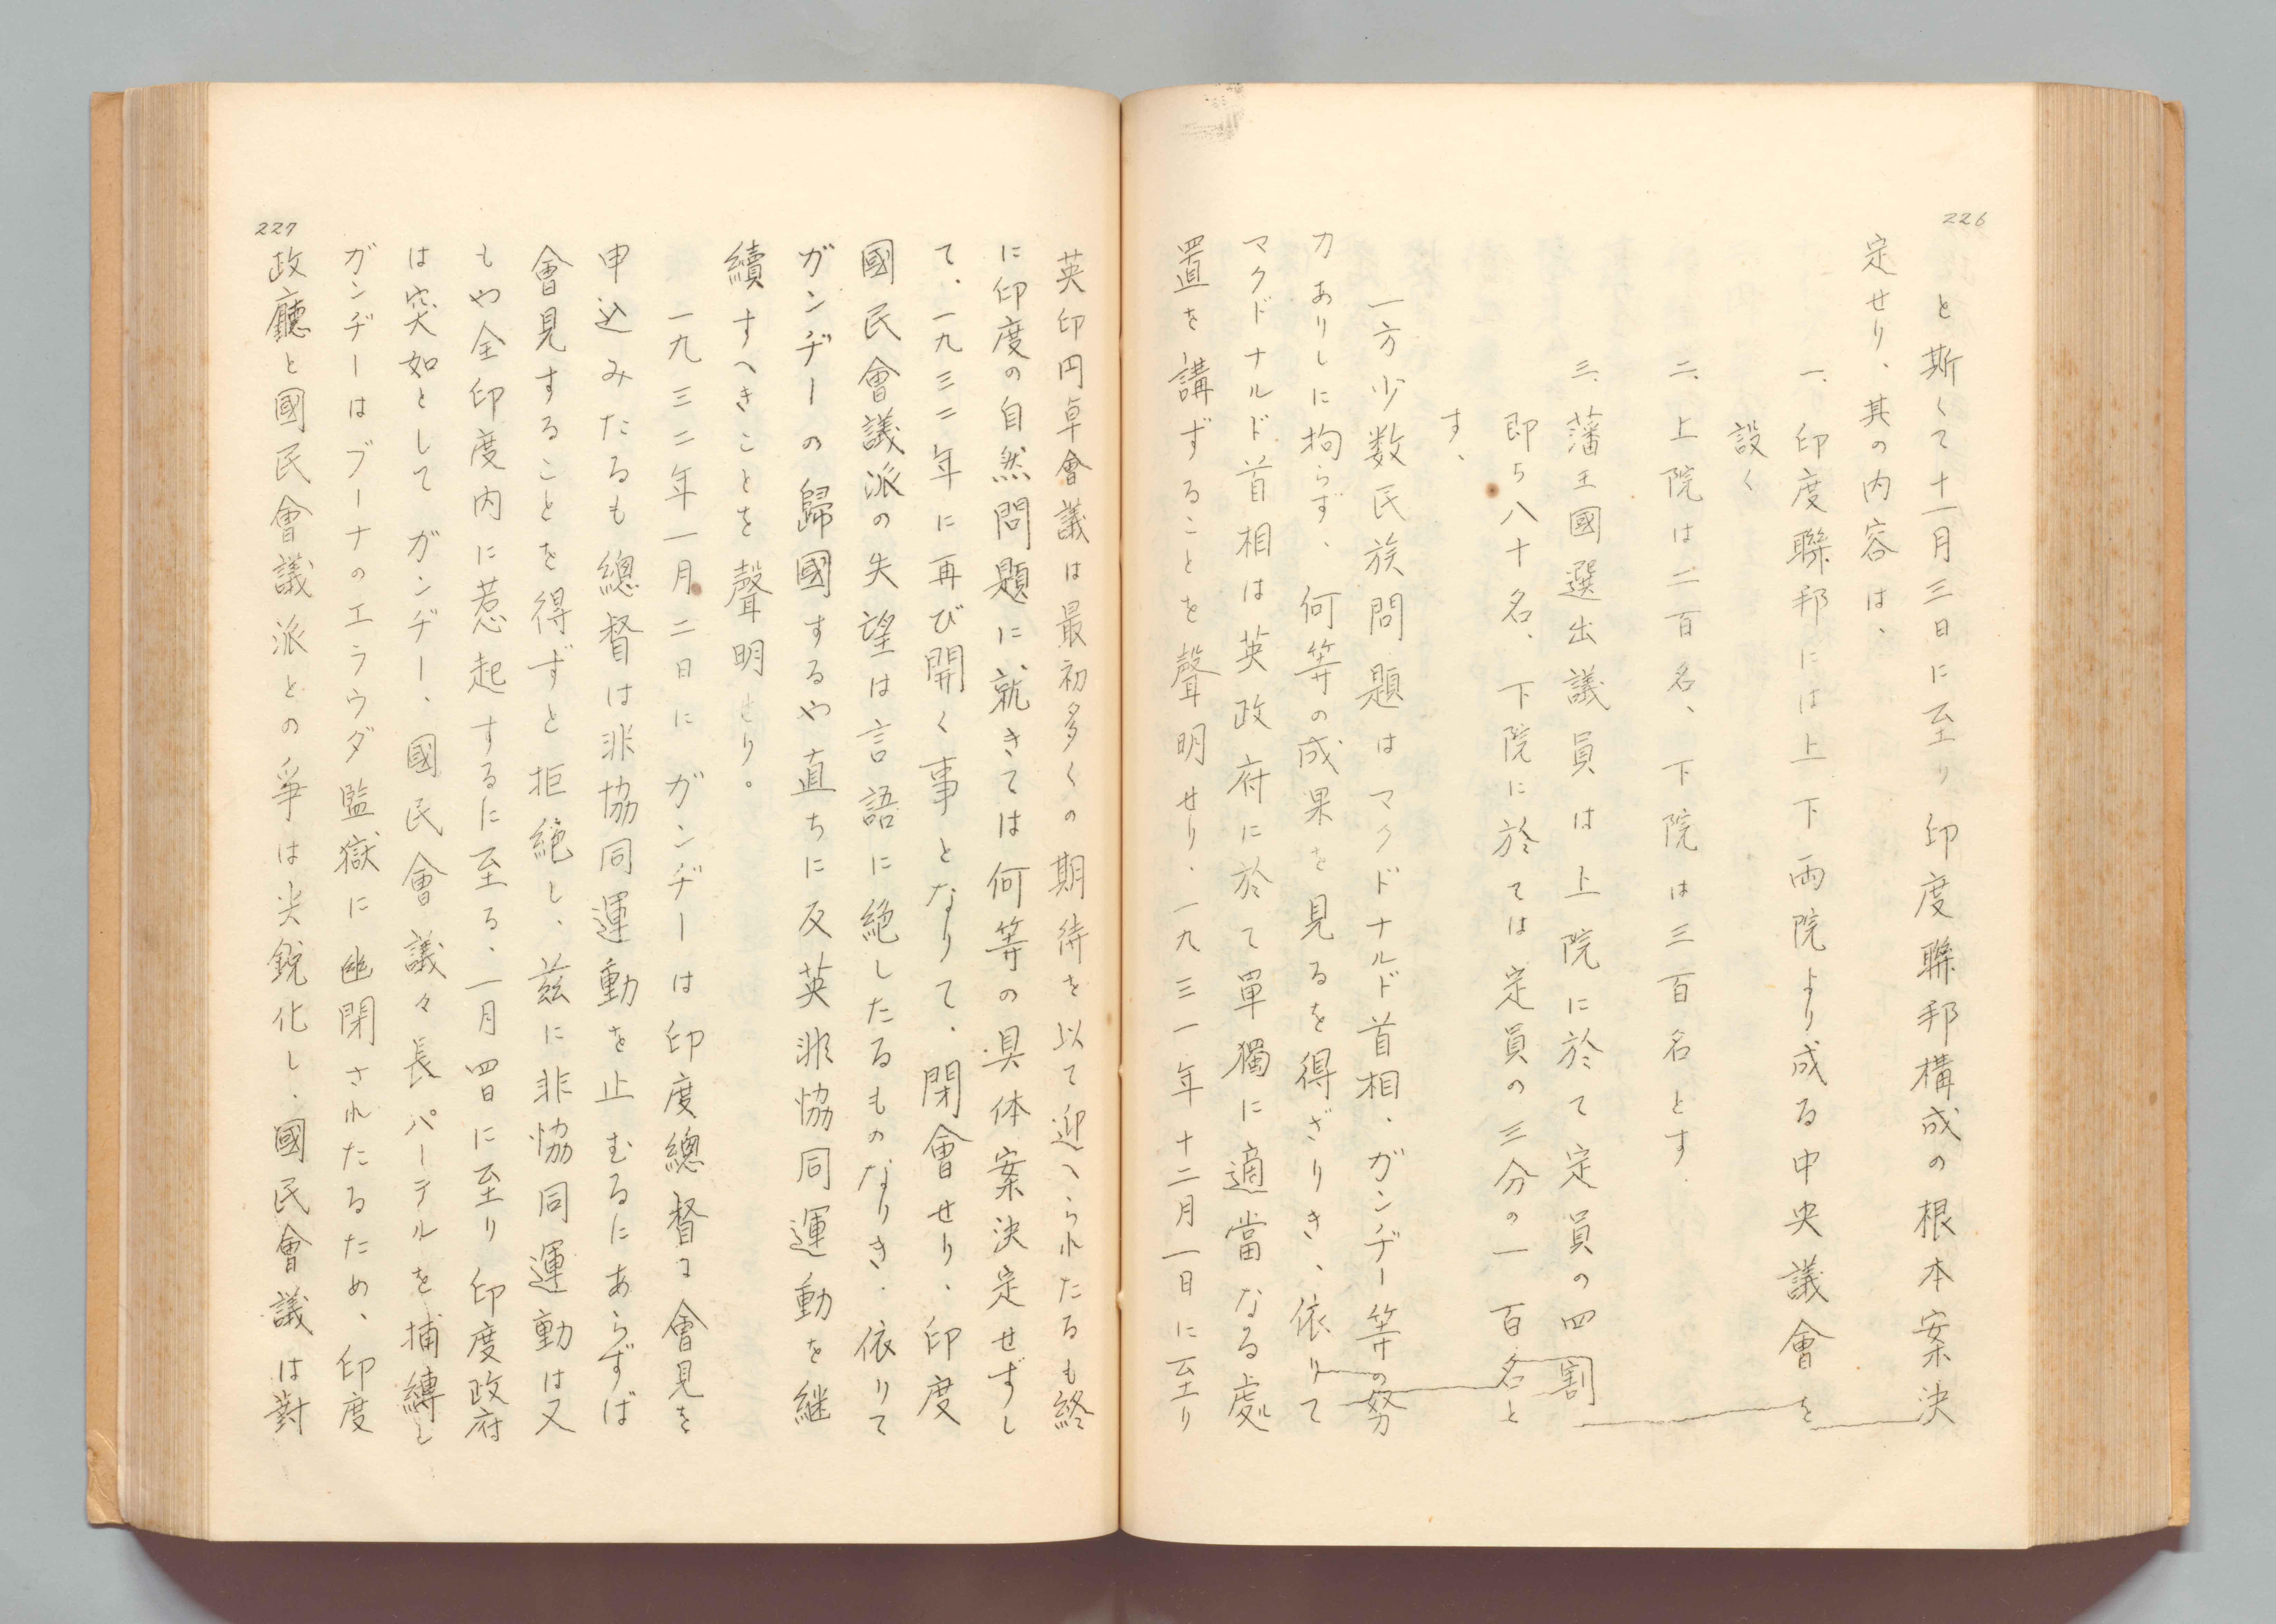 226
と斯くて十一月三日に至り印度聯邦構成の根本案決
定せり、其の内容は、
一、印度聯邦には上下両院より成る中央議會を
設く
二、上院は二百名、下院は三百名とす
三、藩王國選出議員は上院に於て定員の四割
即ち八十名、下院に於ては定員の三分の一百名と
す、
一方少数民族問題はマクドナルド首相、ガンヂー等の努
力ありしに拘らず、何等の成果を見るを得ざりき、依りて
マクドナルド首相は英政府に於て單獨に適當なる處
置を講ずることを聲明せり、一九三一年十二月一日に至り
英印円卓會議は最初多くの期待を以て迎へられたるも終
に印度の自然問題に就きては何等の具体案決定せずし
て、一九三二年に再び開く事となりて、閉會せり、印度
國民會議派の失望は言語に絶したるものなりき、依りて
ガンヂーの歸國するや直ちに反英非協同運動を継
續すへきことを聲明せり。
一九三二年一月二日にガンヂーは印度總督に會見を
申込みたるも總督は非協同運動を止むるにあらずば
會見することを得ずと拒絶し、茲に非協同運動は又
もや全印度内に惹起するに至る、一月四日に至り印度政府
は突如としてガンヂー、國民會議々長パーテルを捕縛し
ガンヂーはプーナのエラウダ監獄に幽閉されたるため、印度
政廳と國民會議派との爭は尖鋭化し、國民會議は對
227